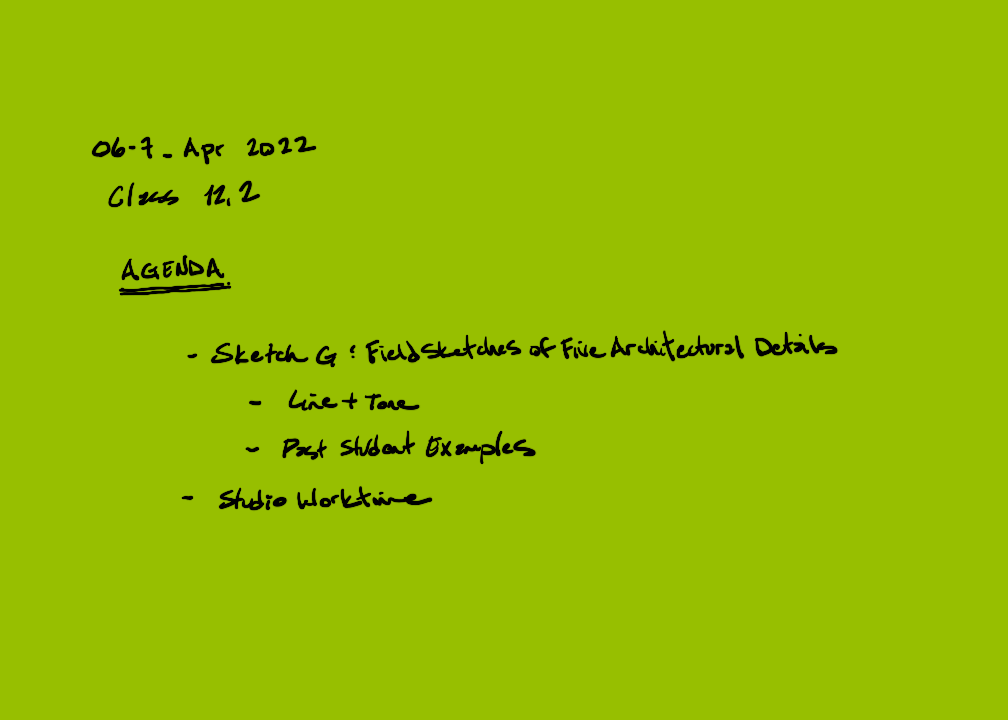 06-7_Apr 2022
Class 12.2
AGENDA.
- Sketch G: Field Sketches of Five Architectural Details
- Line + Tone
- Past Student Examples
- Studio Worktime